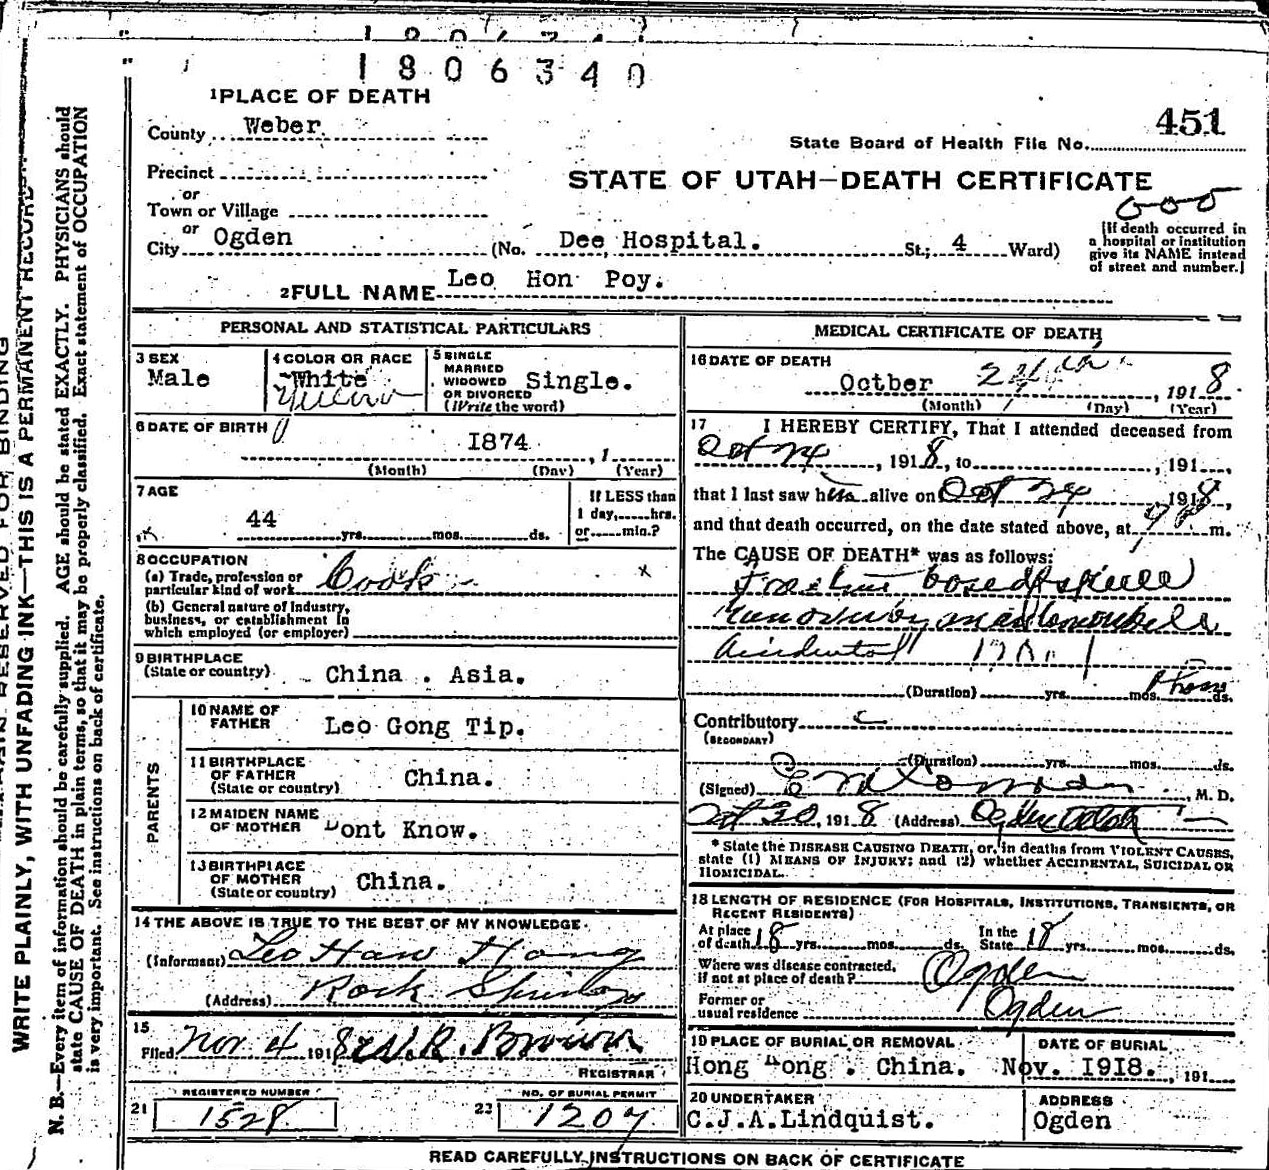 1806340
1 PLACE OF DEATH
County Weber.
451
State Board of Health File No.
Precinct
or
Town or Village
or
City Ogden (No. Dee Hospital. St; 4 Ward)
STATE OF UTAH—DEATH CERTIFICATE
[If death occurred in
a hospital or institution
give its NAME instead
of street and number.]
2 FULL NAME Leo Hon Poy.
PERSONAL AND STATISTICAL PARTICULARS
3 SEX
Male
4 COLOR OR RACE
White
Yellow
5 SINGLE
MARRIED
WIDOWED
OR DIVORCED
(Write the word)
Single.
6 DATE OF BIRTH
I874 , 1
(Month) (Day) (Year)
7 AGE
44 yrs. mos. ds.
If LESS than
1 day, hrs.
or min.?
8 OCCUPATION
(a) Trade, profession or
particular kind of work Cook
(b) General nature of Industry,
business, or establishment in
which employed (or employer)
9 BIRTHPLACE
(State or country) China . Asia.
PARENTS
10 NAME OF
FATHER Leo Gong Tip.
11 BIRTHPLACE
OF FATHER
(State or country) China.
12 MAIDEN NAME
OF MOTHER Dont Know.
13 BIRTHPLACE
OF MOTHER
(State or country) China.
14 THE ABOVE IS TRUE TO THE BEST OF MY KNOWLEDGE
(Informant) Leo Haw Hong
(Address) Rock Springs
15
Filed Nov 4 1918 W.R. Brown
REGISTRAR
REGISTERED NUMBER
21 1528
NO. OF BURIAL PERMIT
22 1207
MEDICAL CERTIFICATE OF DEATH
16 DATE OF DEATH
Octber 24th , 1918
(Month) (Day) (Year)
17 I HEREBY CERTIFY, That I attended deceased from
Oct 24 , 1918, to , 191
that I last saw him alive on Oct 24 , 1918,
and that death occurred, on the date stated above, at m.
The CAUSE OF DEATH* was as follows:
Fracture base of skull
Run over by an automobile
Accidental
(Duration) yrs. mos. ds.
Contributory
(SECONDARY)
(Duration) yrs. mos. ds.
(Signed) , M. D.
1918 (Address) Ogden Utah
* State the DISEASE CAUSING DEATH, or, in deaths from VIOLENT CAUSES,
state (1) MEANS OF INJURY; and (2) whether ACCIDENTAL, SUICIDAL OR
HOMICIDAL.
18 LENGTH OF RESIDENCE (FOR HOSPITALS, INSTITUTIONS, TRANSIENTS, OR
RECENT RESIDENTS)
At place
of death 18 yrs. mos. ds.
In the
State 18 yrs. mos. ds.
Where was disease contracted,
if not at place of death? Ogden
Former or
usual residence Ogden
19 PLACE OF BURIAL OR REMOVAL
Hong Kong . China.
DATE OF BURIAL
Nov. I918. , 191
20 UNDERTAKER
C.J.A.Lindquist.
ADDRESS
Ogden
READ CAREFULLY INSTRUCTIONS ON BACK OF CERTIFICATE
WRITE PLAINLY, WITH UNFADING INK—THIS IS A PERMANENT RECORD
N. B.—Every item of information should be carefully supplied. AGE should be stated EXACTLY. PHYSICIANS should
state CAUSE OF DEATH in plain terms, so that it may be properly classified. Exact statement of OCCUPATION
is very important. See instructions on back of certificate.